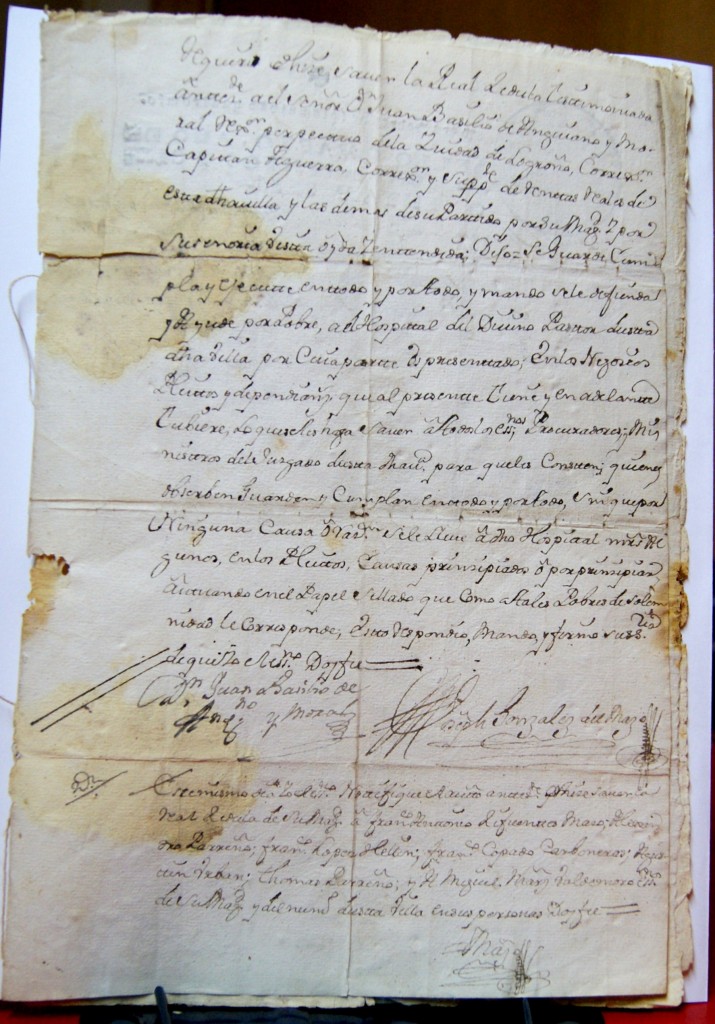 requeri e hize saver la Real Zedula testimoniada
antecede. al Señor Dn Juan Basilio de Anguiano y Mo-
ral Rexor. perpetuo dela Ziudad de Logroño, Correxor.
Capitan Aguerra, Correxor. y Supte. de Rentas Reales de
esta dha villa y las demas desu Partido por su Magd. Y por
su señoria vista oyda y enttendida; Dijo: Se Guarde Cum-
pla y ejecutte en todo y por ttodo, y mando sele defienda
y Ayude por Pobre, a el Hospital del Divino Pastor desta
dha villa por Cuia partte se presenttado; En los Negocios
Pleittos y dependiencias, que al presente tiene y en adelantte
tubiere, Lo que se les haga saver a ttodos los essnos. Procuradores, y Mi-
nistros del Juzgado desta dha va. para que les Consten; quienes
observen Guarden y Cumplan en todo y por ttodo, sin que por
Ninguna Causa o razon sele lleve a dho Hospital mrs. Al-
gunos, en los Pleittos, Causas prinsipiados o por prinsipiar
actuando en el Papel Sellado que Como attales Pobres de solem-
nidad le Corresponde; Esto respondio, Mando, y firmo su sria.
de que io el essno. Doy fee =
Dn Juan Basilio de
Angno y Moral
Joseph Gonzalez del Mazo
Este mismo dia io el essno. Nottifique la Real antecede. e hize saver la
real Zedula de su Magd. a franco Antonio de fuentes Mazo; Alexan-
dro Parreño; franco Lopez Hellin; franco Copado Carboneros;
Thomas Parreño; y Dn Miguel Marn Valdemoro essnos
de su Magd. y del numo desta Villa en sus personas Doy fee =
Mazo